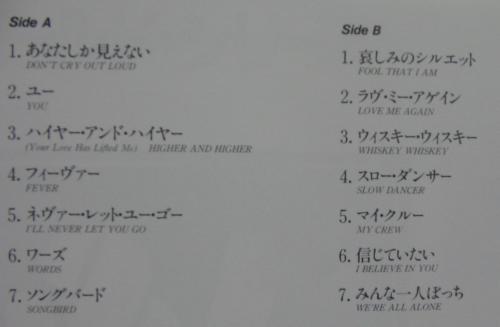 Side A
1. あなたしか見えない
DON'T CRY OUT LOUD
2. ユー
YOU
3. ハイヤー・アンド・ハイヤー
(Your Love Has Lifted Me) HIGHER AND HIGHER
4. フィーヴァー
FEVER
5. ネヴァー・レット・ユー・ゴー
I'LL NEVER LET YOU GO
6. ワーズ
WORDS
7. ソングバード
SONGBIRD
Side B
1. 哀しみのシルエット
FOOL THAT I AM
2. ラヴ・ミー・アゲイン
LOVE ME AGAIN
3. ウィスキー・ウィスキー
WHISKEY WHISKEY
4. スロー・ダンサー
SLOW DANCER
5. マイ・クルー
MY CREW
6. 信じていたい
I BELIEVE IN YOU
7. みんな一人ぼっち
WE'RE ALL ALONE